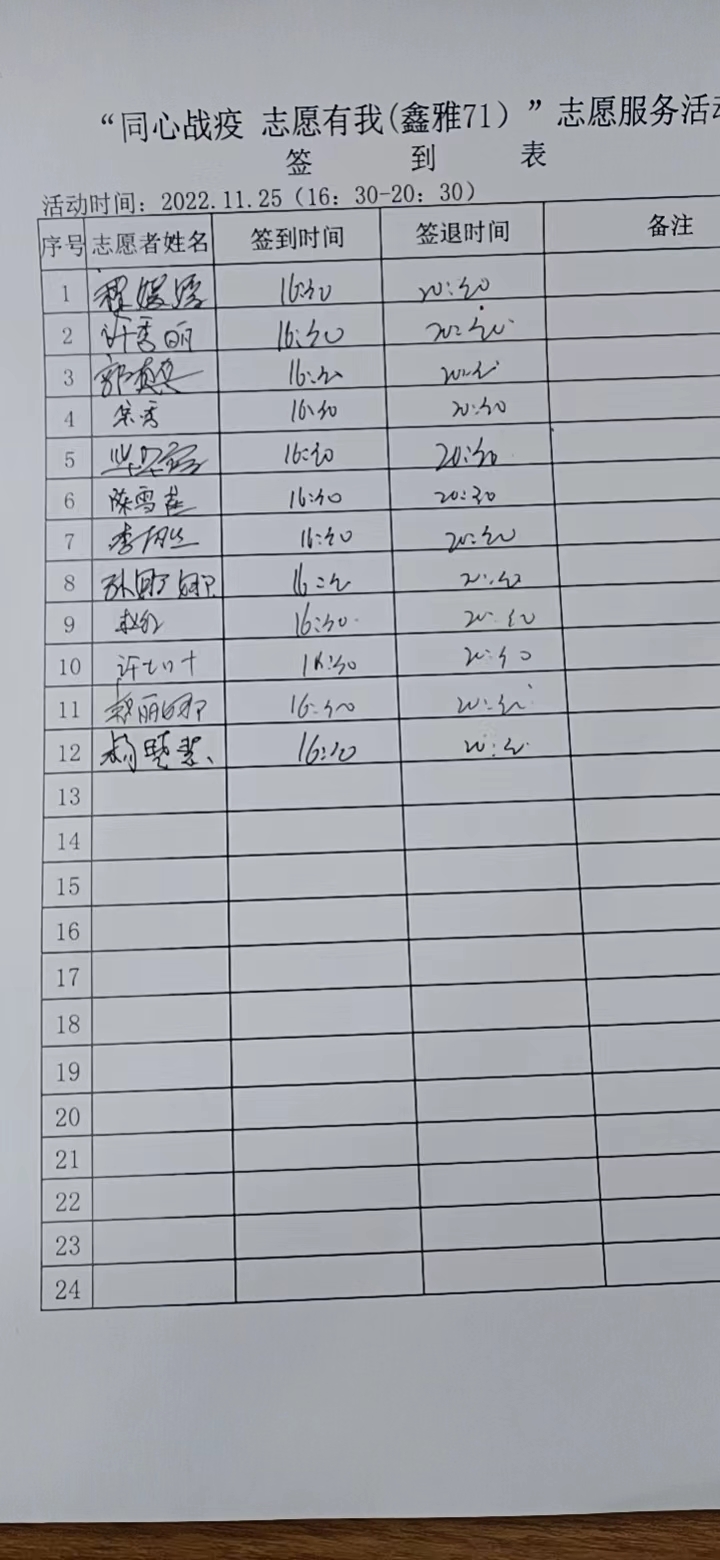 “同心战疫 志愿有我(鑫雅71)”志愿服务活动
签 到 表
活动时间: 2022.11.25(16: 30-20: 30)
序号 志愿者姓名 签到时间 签退时间 备注
1 16:30 20:30
2 许秀丽 16:30 20:30
3 16:30 20:30
4 16:30 20:30
5 16:30 20:30
6 陈雪莲 16:30 20:30
7 16:30 20:30
8 孙娜娜 16:30 20:30
9 赵红 16:30 20:30
10 16:30 20:30
11 16:30 20:30
12 16:30 20:30
13
14
15
16
17
18
19
20
21
22
23
24